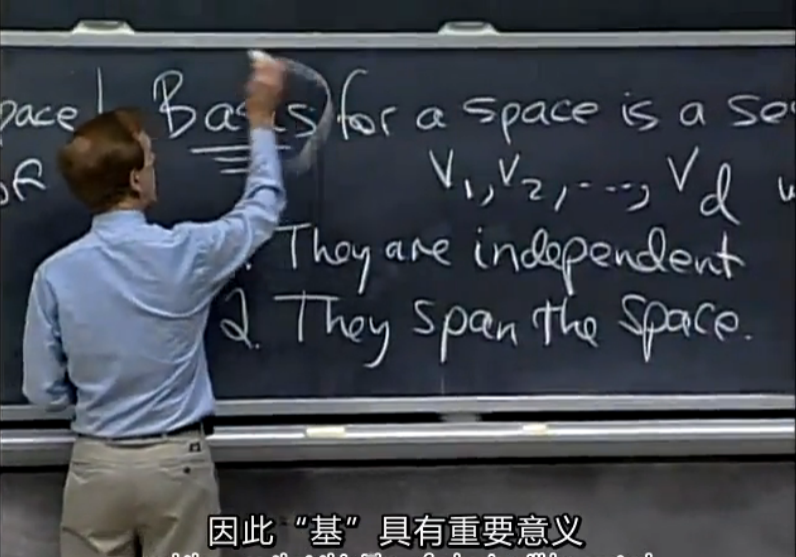 pace! Basis for a space is a se
of V₁, V₂, ---, Vd w
. They are independent
2. They span the space.
因此“基”具有重要意义